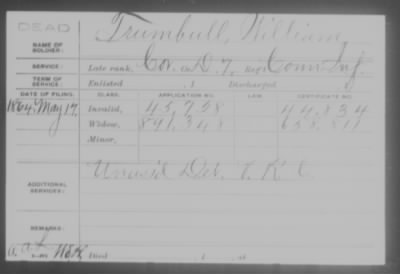 DEAD
Trumbull, William
NAME OF SOLDIER:
SERVICE: Late rank, Cor. Co. D. 7, Reg't Conn Inf.
TERM OF SERVICE: Enlisted , 1 Discharged , 1
DATE OF FILING. CLASS. APPLICATION NO. LAW. CERTIFICATE NO.
1864 May 17. Invalid, 45,758 44,834
Widow, 841,348 653,811
Minor,
ADDITIONAL SERVICES: Det.
REMARKS:
Died , 1 , at